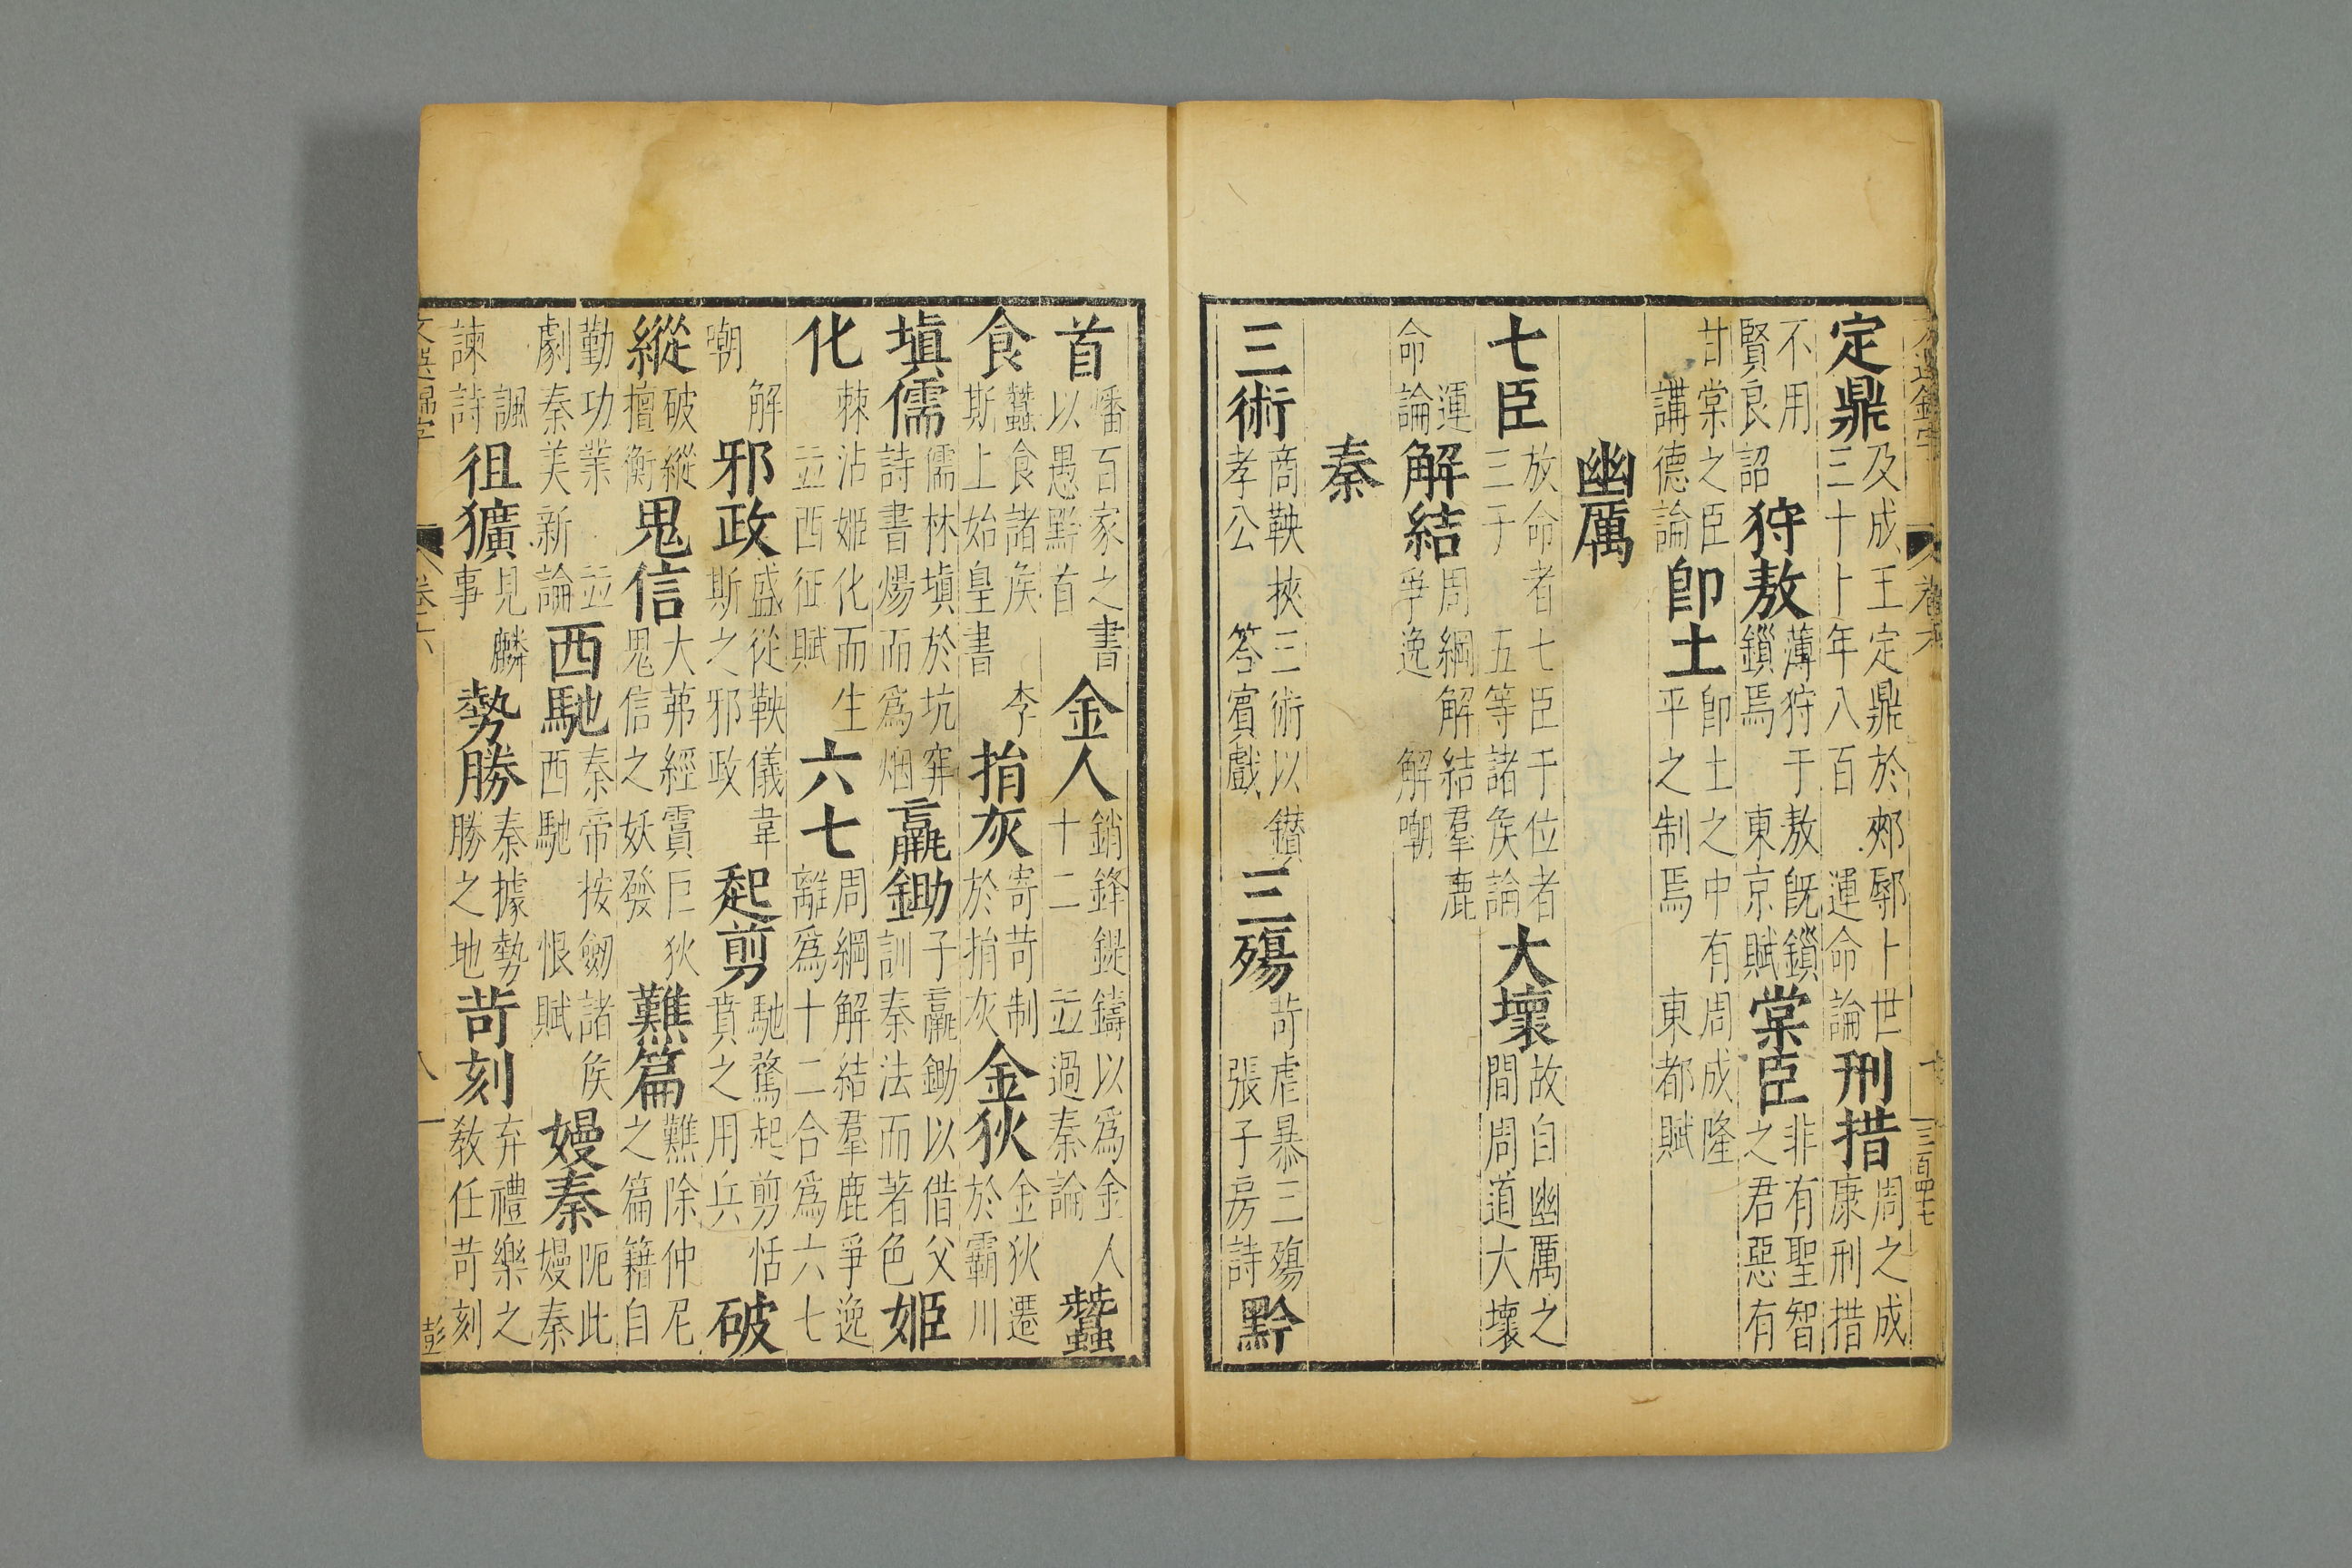 定鼎及成王定鼎於郟鄏卜世三十卜年八百 運命論刑措周之成康刑措
不用賢良詔狩敖薄狩于敖旣鎖鎖焉 東京賦棠臣非有聖智之君惡有
甘棠之臣 講德論卽土卽土之中有周成隆平之制焉 東都賦
幽厲
七臣放命者七臣干位者三子 五等諸侯論大壞故自幽厲之間周道大壞
運命論解結周綱解結羣鹿爭逸 解嘲
秦
三術商鞅挾三術以鑽孝公 答賓戲三殤苛虐暴三殤 張子房詩黔
首燔百家之書以愚黔首金人銷鋒鍉鑄以爲金人十二 並過秦論蠶
食蠶食諸侯 李斯上始皇書捎灰寄苛制於捎灰金狄金狄遷於霸川
塡儒儒林塡於坑穽詩書煬而爲烟羸鋤子羸鋤以借父訓秦法而著色姬
化棘沾姬化而生 並西征賦六七周綱解結羣鹿爭逸離爲十二合爲六七
解嘲邪政盛從鞅儀韋斯之邪政起剪馳騖起剪恬賁之用兵破
縱破縱擅衡鬼信大茀經霣巨狄鬼信之妖發難篇難除仲尼之篇籍自
勤功業 並劇秦美新論西馳秦帝按劒諸侯西馳 恨賦嫚秦阨此嫚秦
諷諫詩徂獷見麟事勢勝秦據勢勝之地苛刻弃禮樂之敎任苛刻
卷六
三百四十七
彭